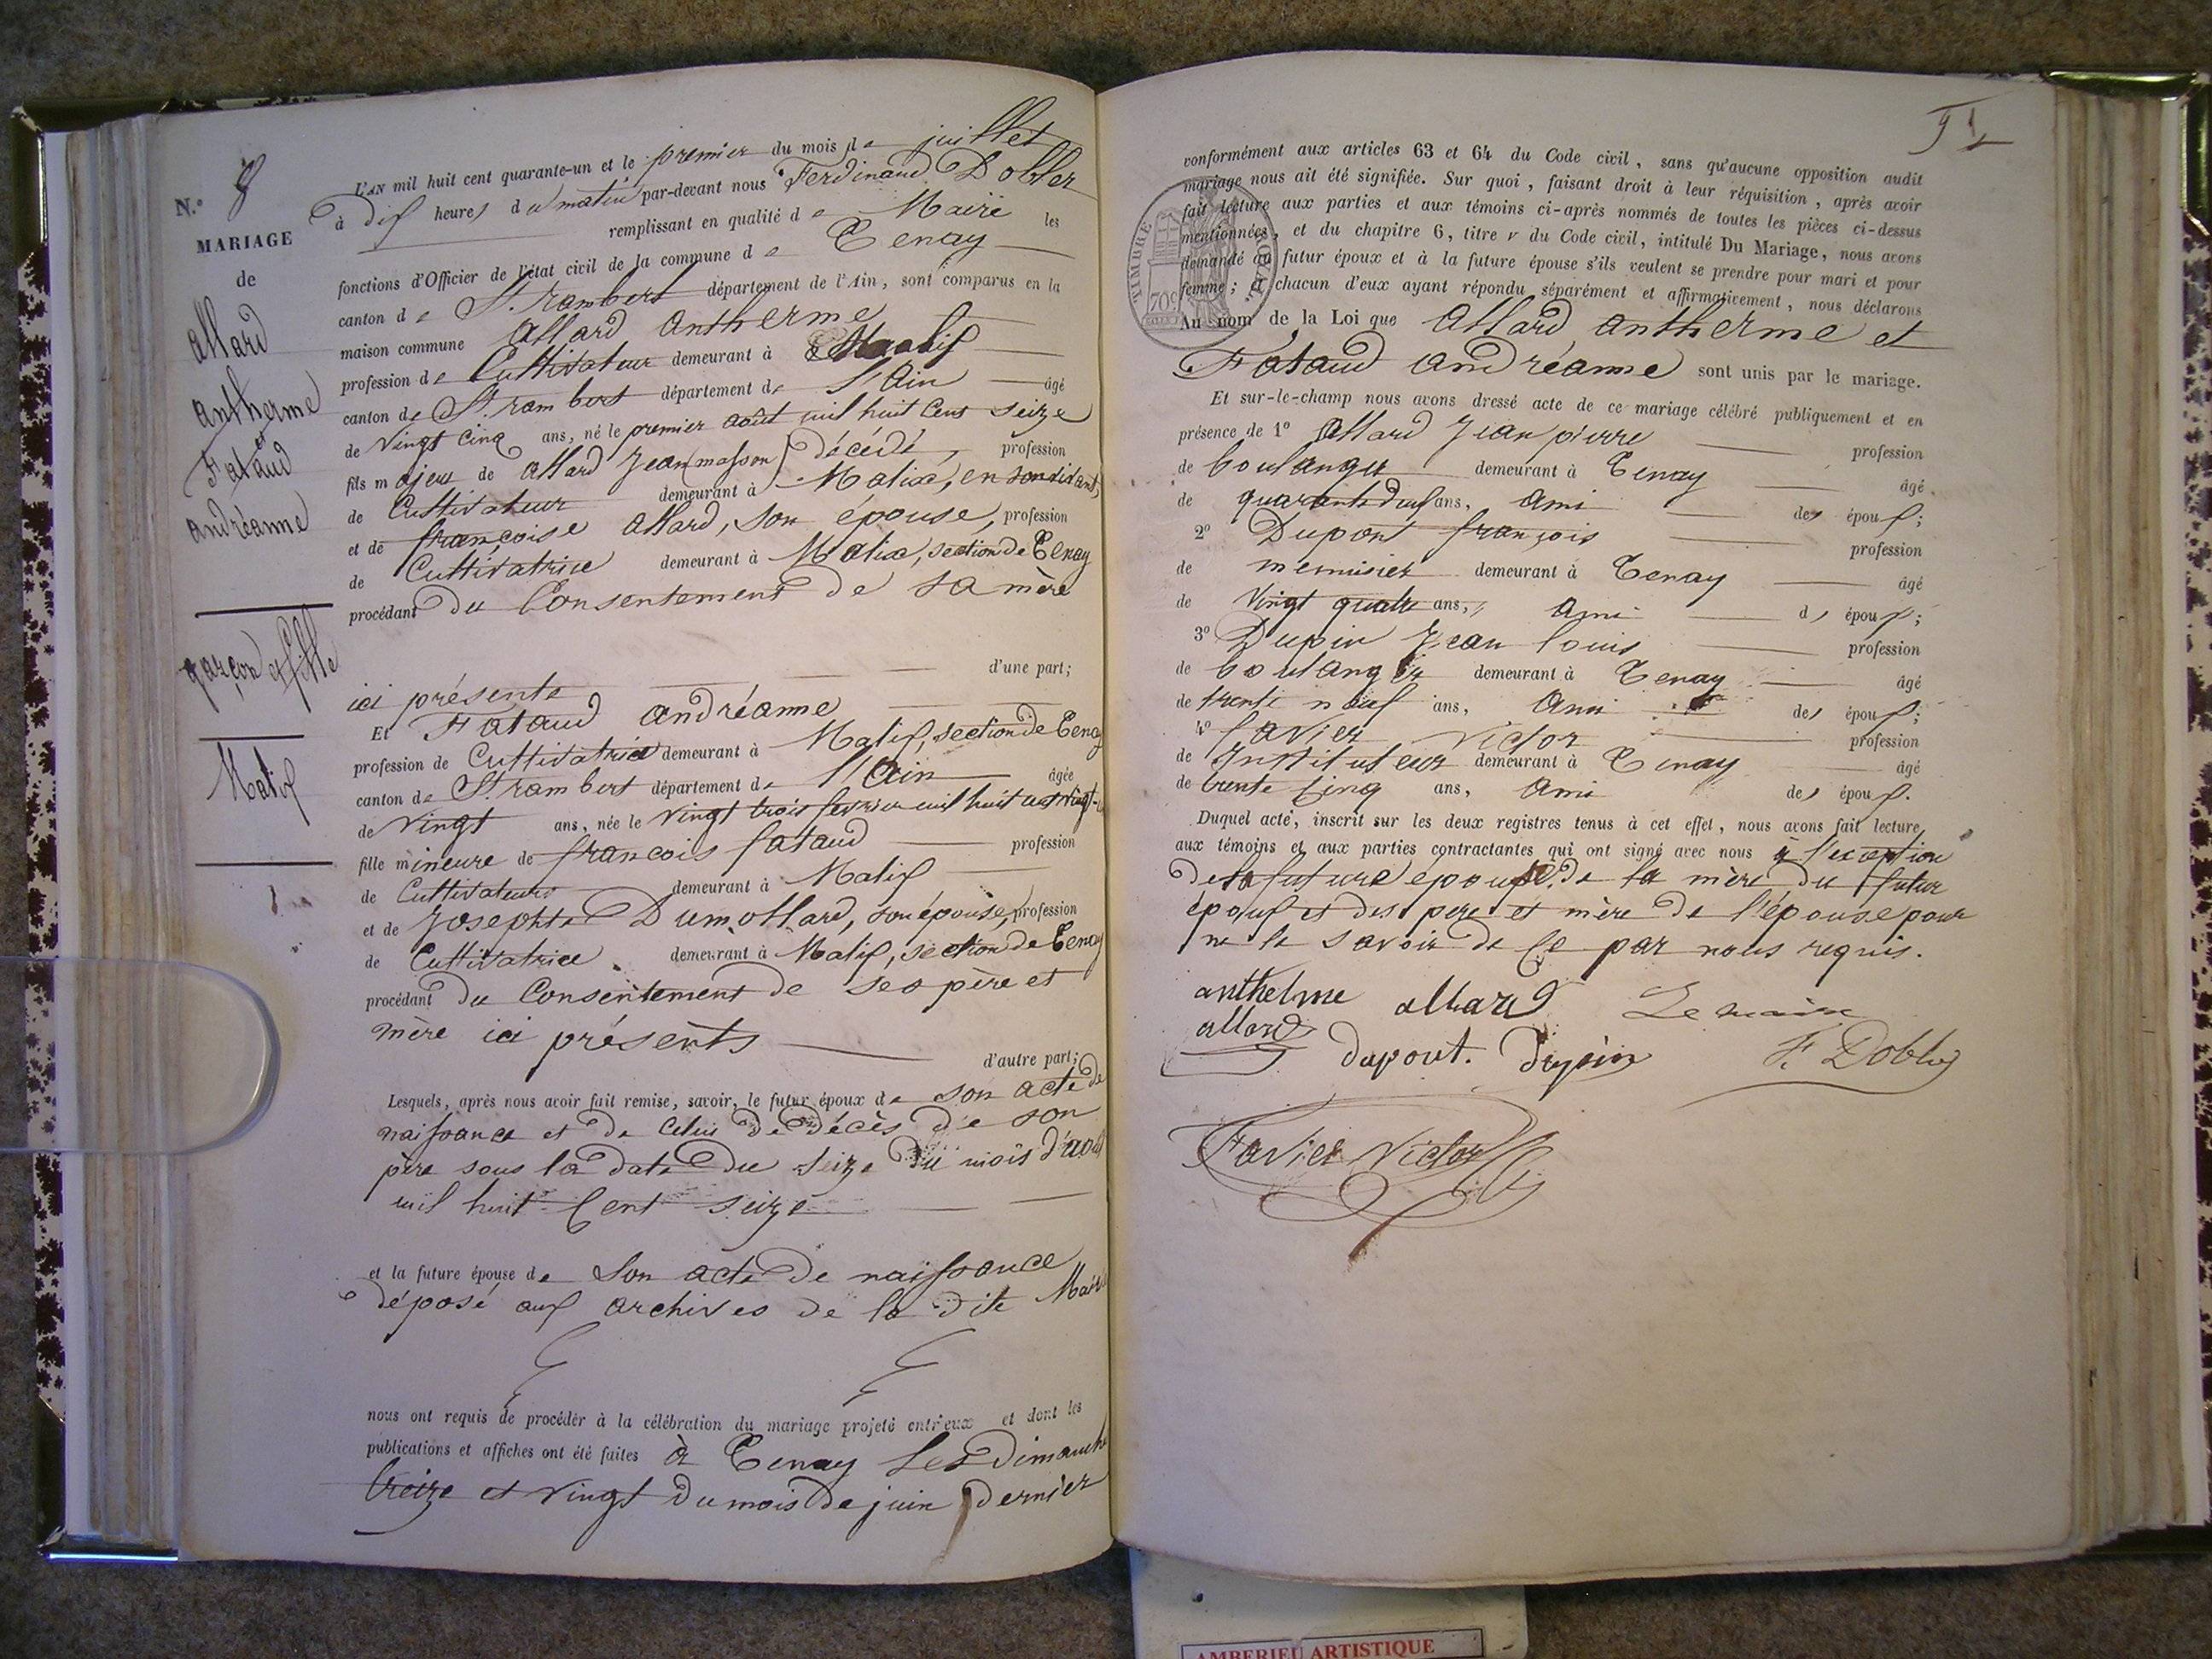 N.º 8
MARIAGE
de
Allard
Antherme
et
Fataud
Andréanne
garçon et fille
Matix
L'AN mil huit cent quarante-un et le premier du mois de juillet
à dix heures du matin par-devant nous Ferdinand Dobler
remplissant en qualité de Maire les
fonctions d'Officier de l'état civil de la commune de Tenay
canton de St. rambert département de l'Ain, sont comparus en la
maison commune Allard Antherme
profession de Cultivateur demeurant à Matix
canton de St. rambert département de l'Ain âgé
de vingt cinq ans, né le premier août mil huit cent seize
fils majeur de Allard Jean masson décédé, profession
de Cultivateur demeurant à Matix, en son vivant,
et de françoise Allard, son épouse, profession
de Cultivatrice demeurant à Matix, section de Tenay
procédant du Consentement de sa mère
ici présente d'une part;
Et Fataud Andréanne
profession de Cultivatrice demeurant à Matix, section de Tenay
canton de St. rambert département de l'Ain âgée
de vingt ans, née le vingt trois fevrier mil huit cent vingt-
fille mineure de françois fataud profession
de Cultivateur demeurant à Matix
et de Josephte Dumollard, son épouse, profession
de Cultivatrice demeurant à Matix, section de Tenay
procédant du Consentement de ses père et
mère ici présents d'autre part;
Lesquels, après nous avoir fait remise, savoir, le futur époux de son acte de
naissance et de celui de décès de son
père sous la date du seize du mois d'août
mil huit Cent seize
et la future épouse de son acte de naissance
déposé aux archives de la dite Mairie
nous ont requis de procéder à la célébration du mariage projeté entr'eux et dont les
publications et affiches ont été faites à Tenay les dimanche
treize et vingt du mois de juin dernier
conformément aux articles 63 et 64 du Code civil, sans qu'aucune opposition audit
mariage nous ait été signifiée. Sur quoi, faisant droit à leur réquisition, après avoir
fait lecture aux parties et aux témoins ci-après nommés de toutes les pièces ci-dessus
mentionnées, et du chapitre 6, titre v du Code civil, intitulé Du Mariage, nous avons
demandé au futur époux et à la future épouse s'ils veulent se prendre pour mari et pour
femme; et chacun d'eux ayant répondu séparément et affirmativement, nous déclarons
TIMBRE ROYAL
70c
Au nom de la Loi que Allard Antherme et
Fataud Andréanne sont unis par le mariage.
Et sur-le-champ nous avons dressé acte de ce mariage célébré publiquement et en
présence de 1º Allard Jean pierre profession
de boulanger demeurant à Tenay âgé
de quarante deux ans, ami des époux;
2º Dupont françois profession
de menuisier demeurant à Tenay âgé
de vingt quatre ans, ami des époux;
3º Dupin Jean louis profession
de boulanger demeurant à Tenay âgé
de trente neuf ans, ami des époux;
4º favier victor profession
de Instituteur demeurant à Tenay âgé
de trente cinq ans, ami des époux.
Duquel acte, inscrit sur les deux registres tenus à cet effet, nous avons fait lecture
aux témoins et aux parties contractantes qui ont signé avec nous à l'exception
de la future epouse, de la mère du futur
époux et des pere et mère de l'épouse pour
ne le savoir de ce par nous requis.
anthelme allard Le maire
allard
dupont. Dupin F. Dobler
Favier Victor
AMBERIEU ARTISTIQUE